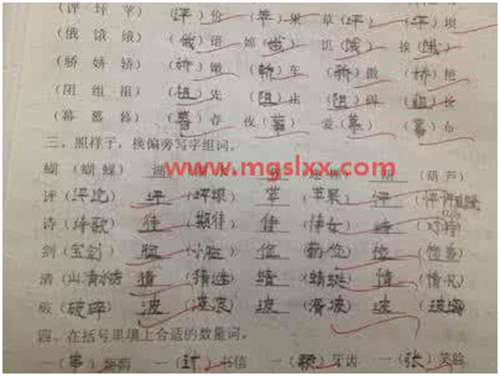 (评 坪 苹) (评)价 (苹)果 草(坪) (坪)坝
(俄 饿 娥) (俄)语 嫦(娥) 饥(饿) 挨(饿)
(骄 娇 轿) (娇)嫩 (轿)车 (骄)傲 (娇)艳
(阻 组 祖) (祖)先 (阻)止 (阻)碍 (组)长
(暮 慕 幕) (暮)春 夜(幕) 爱(慕) (幕)布
三、照样子,换偏旁写字组词。
www.mgslxx.com
蝴 (蝴蝶) 湖 葫芦)
评 (评论) 坪 (坪坝) 苹 (苹果) 坪
诗 (诗歌) 待 (期待) 侍 (侍女) 峙 (对峙)
剑 (宝剑) 脸 (小脸) 俭 俭
清 (山清水秀) 猜 (猜谜) 蜻 (蜻蜓) 情 (情况)
破 (破碎) 波 (波浪) 坡 坡) 玻 (玻璃)
四、在括号里填上合适的数量词。
一(封)书信 一(颗)牙齿 一(张)笑脸